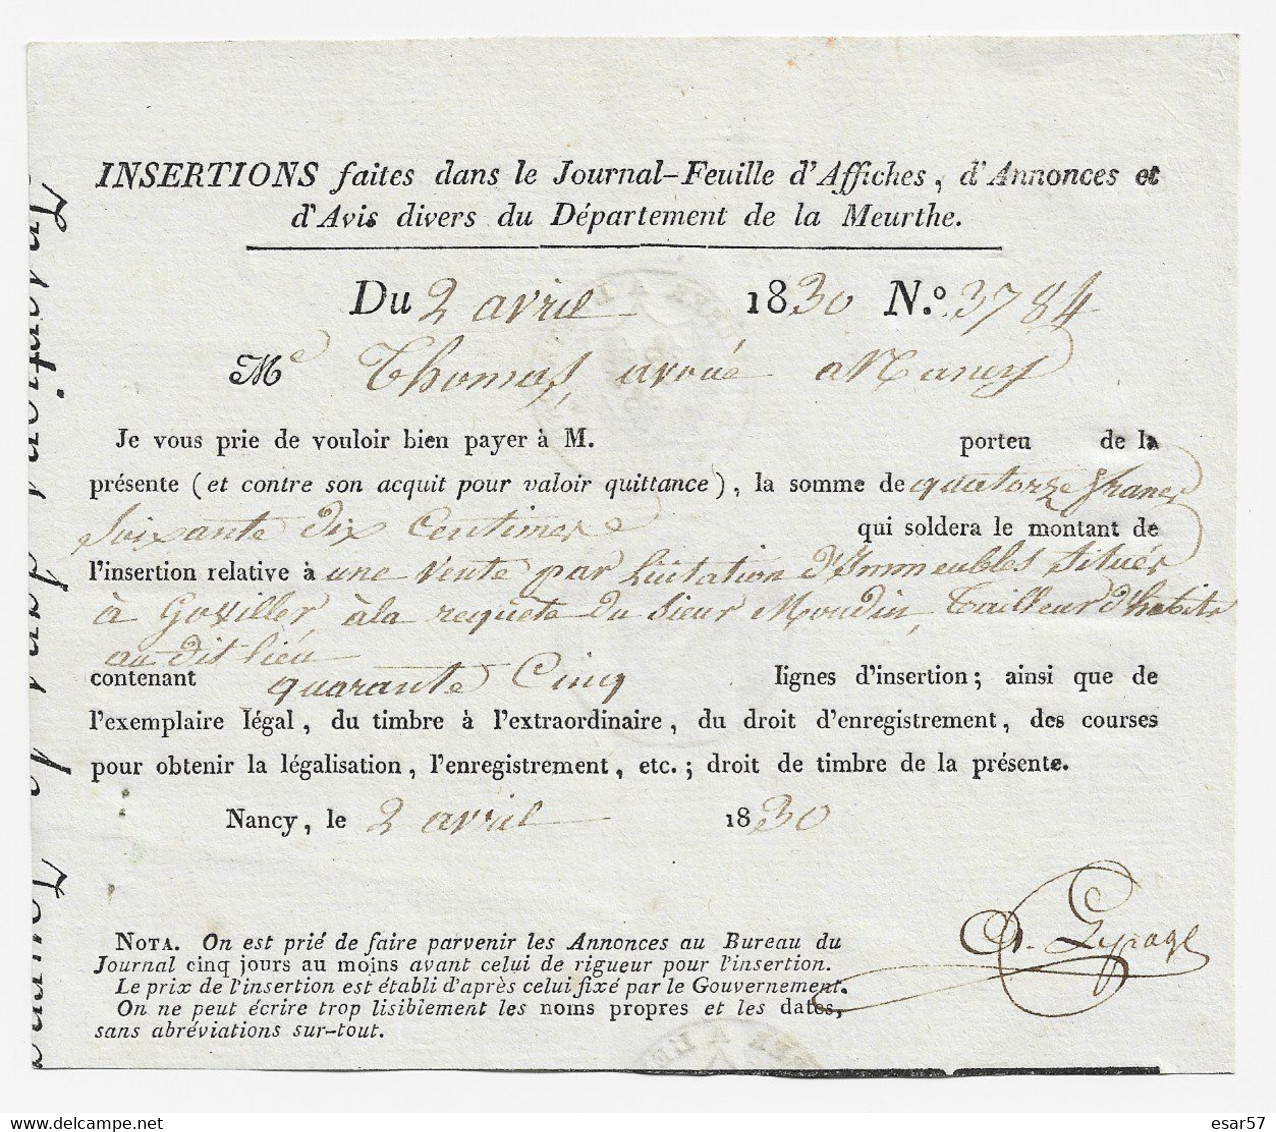 INSERTIONS faites dans le Journal-Feuille d'Affiches, d'Annonces et
d'Avis divers du Département de la Meurthe.
Du 2 avril 1830 N.º 3784
Me Thomas, avoué a Nancy
Je vous prie de vouloir bien payer à M. porteu de la
présente (et contre son acquit pour valoir quittance), la somme de quatorze francs
Soixante dix Centimes qui soldera le montant de
l'insertion relative à une vente par licitation d'Immeubles situés
à Goviller, à la requête du sieur Moudin, Tailleur d'habits
au dit lieu
contenant quarante Cinq lignes d'insertion; ainsi que de
l'exemplaire légal, du timbre à l'extraordinaire, du droit d'enregistrement, des courses
pour obtenir la légalisation, l'enregistrement, etc.; droit de timbre de la présente.
Nancy, le 2 avril 1830
NOTA. On est prié de faire parvenir les Annonces au Bureau du
Journal cinq jours au moins avant celui de rigueur pour l'insertion.
Le prix de l'insertion est établi d'après celui fixé par le Gouvernement.
On ne peut écrire trop lisiblement les noms propres et les dates,
sans abréviations sur-tout.
esar57